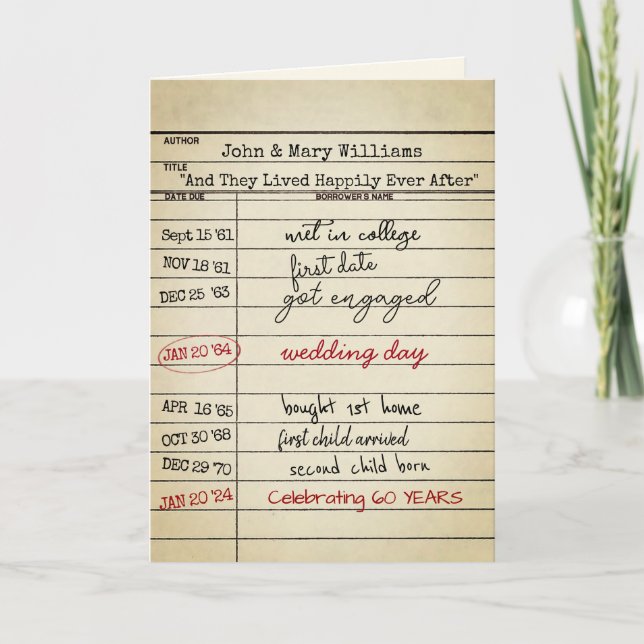 AUTHOR
John & Mary Williams
TITLE
"And They Lived Happily Ever After"
DATE DUE BORROWER'S NAME
Sept 15 '61 met in college
NOV 18 '61 first date
DEC 25 '63 got engaged
JAN 20 '64 wedding day
APR 16 '65 bought 1st home
OCT 30 '68 first child arrived
DEC 29 '70 second child born
JAN 20 '24 Celebrating 60 YEARS